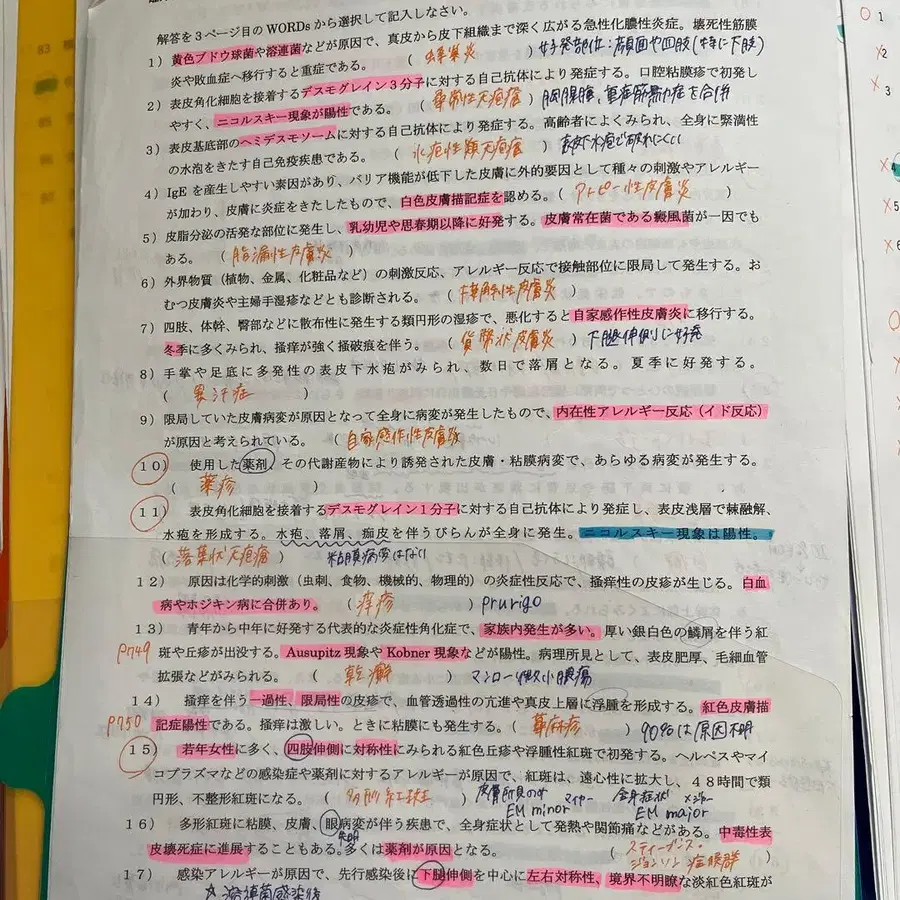 解答を3ページ目のWORDsから選択して記入しなさい。
1) 黄色ブドウ球菌や溶連菌などが原因で、真皮から皮下組織まで深く広がる急性化膿性炎症。壊死性筋膜
炎や敗血症へ移行すると重症である。( 蜂窩炎 ) 好発部位:顔面や四肢(特に下肢)
2) 表皮角化細胞を接着するデスモグレイン3分子に対する自己抗体により発症する。口腔粘膜疹で初発し
やすく、ニコルスキー現象が陽性である。( 尋常性天疱瘡 ) 胸腺腫、重症筋無力症を合併
3) 表皮基底部のヘミデスモソームに対する自己抗体により発症する。高齢者によくみられ、全身に緊満性
の水泡をきたす自己免疫疾患である。( 水疱性類天疱瘡 ) 表皮下水疱で破れにくい
4) IgEを産生しやすい素因があり、バリア機能が低下した皮膚に外的要因として種々の刺激やアレルギー
が加わり、皮膚に炎症をきたしたもので、白色皮膚描記症を認める。( アトピー性皮膚炎 )
5) 皮脂分泌の活発な部位に発生し、乳幼児や思春期以降に好発する。皮膚常在菌である癜風菌が一因でも
ある。( 脂漏性皮膚炎 )
6) 外界物質(植物、金属、化粧品など)の刺激反応、アレルギー反応で接触部位に限局して発生する。お
むつ皮膚炎や主婦手湿疹などとも診断される。( 接触性皮膚炎 )
7) 四肢、体幹、臀部などに散布性に発生する類円形の湿疹で、悪化すると自家感作性皮膚炎に移行する。
冬季に多くみられ、掻痒が強く掻破痕を伴う。( 貨幣状皮膚炎 ) 下腿伸側に好発
8) 手掌や足底に多発性の表皮下水疱がみられ、数日で落屑となる。夏季に好発する。
( 異汗症 )
9) 限局していた皮膚病変が原因となって全身に病変が発生したもので、内在性アレルギー反応(イド反応)
が原因と考えられている。( 自家感作性皮膚炎 )
10) 使用した薬剤、その代謝産物により誘発された皮膚・粘膜病変で、あらゆる病変が発生する。
( 薬疹 )
11) 表皮角化細胞を接着するデスモグレイン1分子に対する自己抗体により発症し、表皮浅層で棘融解、
水疱を形成する。水疱、落屑、痂皮を伴うびらんが全身に発生。ニコルスキー現象は陽性。
( 落葉状天疱瘡 ) 粘膜病変はなし
12) 原因は化学的刺激(虫刺、食物、機械的、物理的)の炎症性反応で、掻痒性の皮疹が生じる。白血
病やホジキン病に合併あり。( 痒疹 ) prurigo
13) 青年から中年に好発する代表的な炎症性角化症で、家族内発生が多い。厚い銀白色の鱗屑を伴う紅
P749 斑や丘疹が出没する。Ausupitz現象やKobner現象などが陽性。病理所見として、表皮肥厚、毛細血管
拡張などがみられる。( 乾癬 ) マンロー微小膿瘍
14) 掻痒を伴う一過性、限局性の皮疹で、血管透過性の亢進や真皮上層に浮腫を形成する。紅色皮膚描
P750 記症陽性である。掻痒は激しい。ときに粘膜にも発生する。( 蕁麻疹 ) 90%は原因不明
15) 若年女性に多く、四肢伸側に対称性にみられる紅色丘疹や浮腫性紅斑で初発する。ヘルペスやマイ
コプラズマなどの感染症や薬剤に対するアレルギーが原因で、紅斑は、遠心性に拡大し、48時間で類
円形、不整形紅斑になる。( 多形紅斑 ) 皮膚所見のみ EM minor マイナー 全身症状 EM major メジャー
16) 多形紅斑に粘膜、皮膚、眼病変が伴う疾患で、全身症状として発熱や関節痛などがある。中毒性表
失明
皮壊死症に進展することもある。多くは薬剤が原因となる。( スティーブンス・ジョンソン症候群 )
17) 感染アレルギーが原因で、先行感染後に下腿伸側を中心に左右対称性、境界不明瞭な淡紅色紅斑が
溶連菌感染後
83
1
2
3
4
5
6